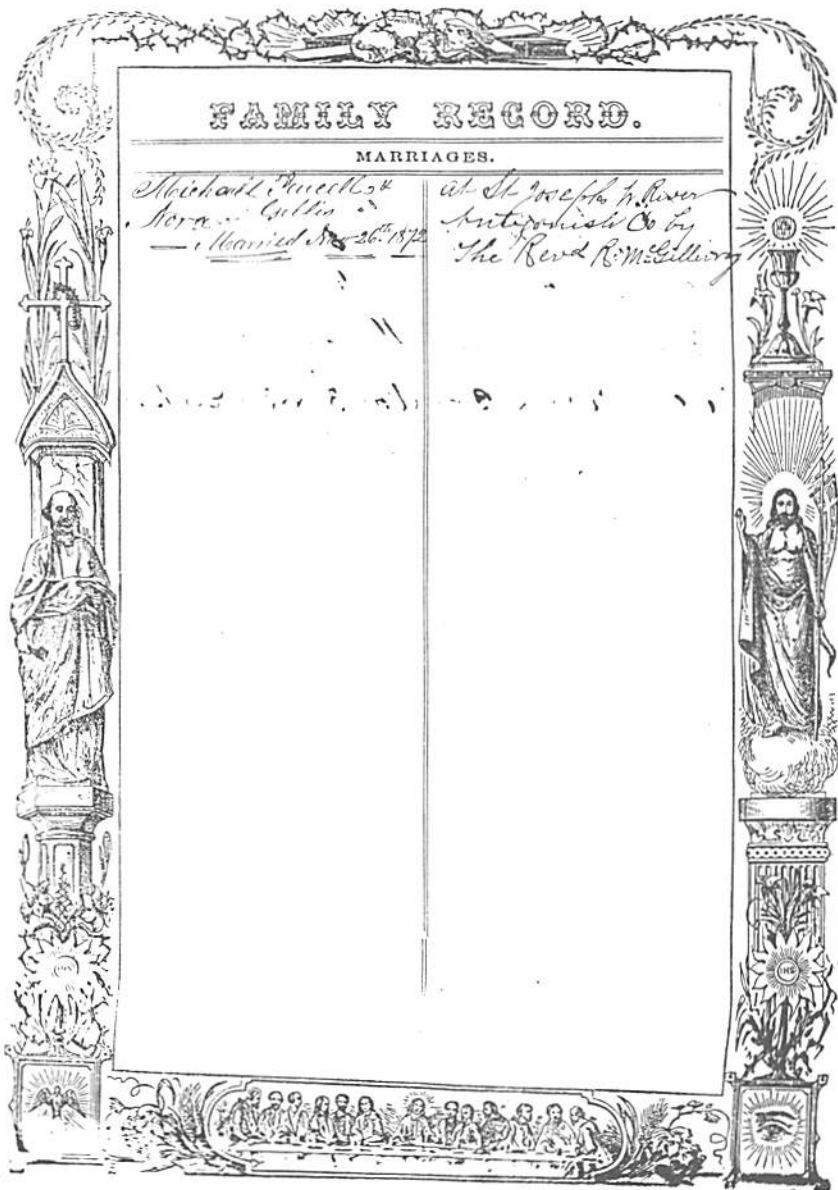 FAMILY RECORD.
MARRIAGES.
Michaell Purcell &
Nora Gillis
Married Nov 26th 1872
at St Josephs W. River
Antigonish Co by
The Revd R. McGillivray
IHS
IHS